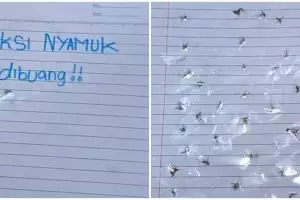 KSI NYAMUK
dibuang!!